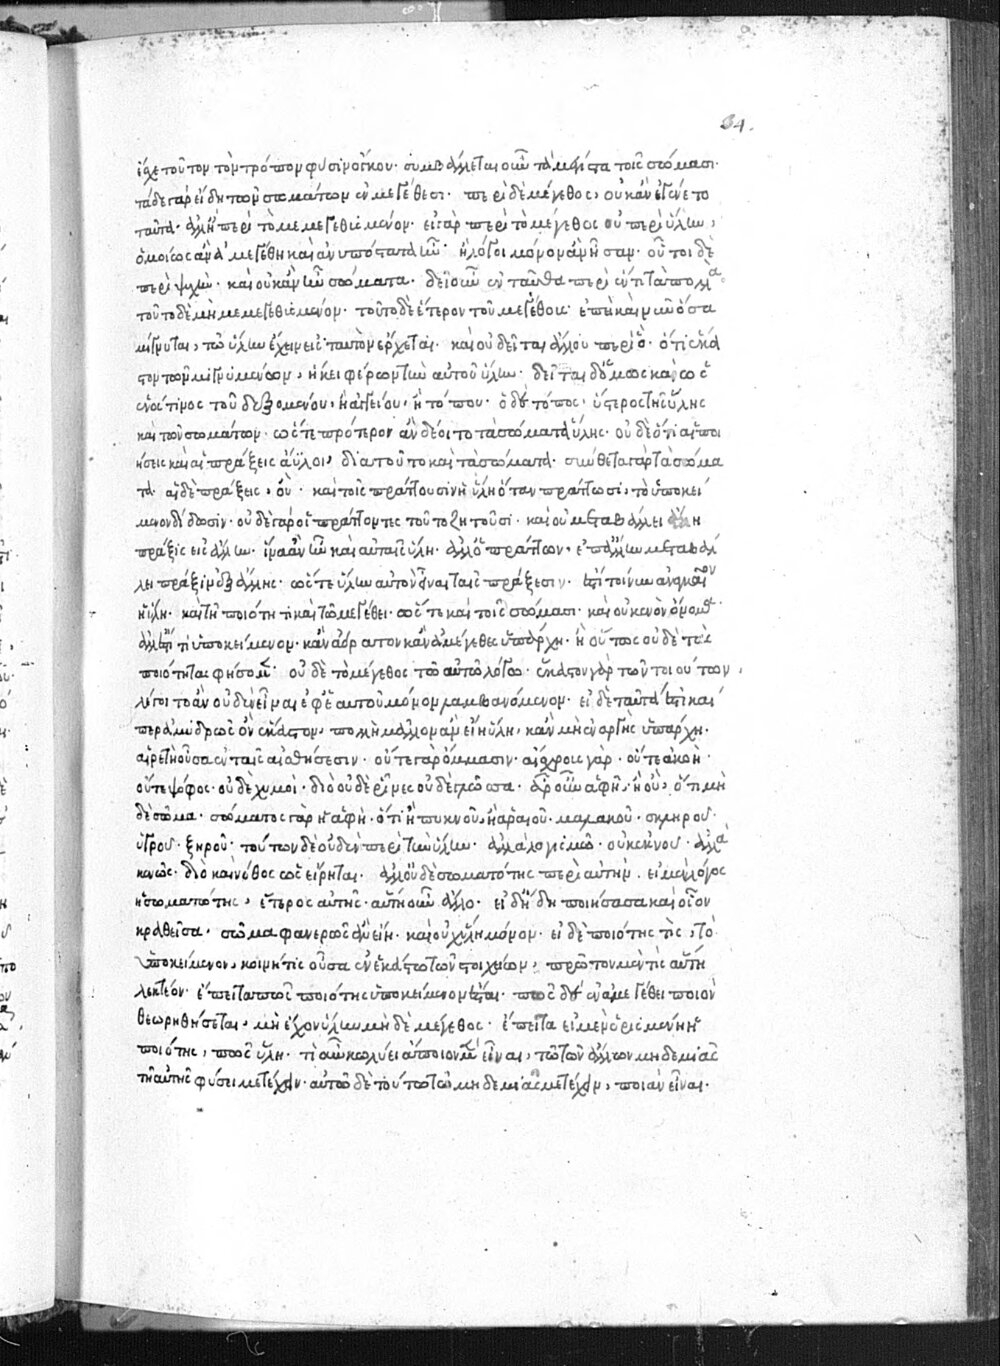 34.
ἔχε τοῦτον τὸν τρόπον φύσιν ὄγκου· συμβάλλεται οὖν τὰ μέγιστα τοῖς σώμασι·
τά τε γὰρ εἴδη τῶν σωμάτων ἐν μεγέθεσι· περὶ δὲ μέγεθος, οὐκ ἂν ἐγένετο
ταῦτα· ἀλλ' ἢ περὶ τὸ μεμεγεθυσμένον· εἰ γὰρ περὶ τὸ μέγεθος οὐ περὶ ὕλην,
ὁμοίως ἂν ἀμεγέθη καὶ ἀνυπόστατα ἦν· ἢ λόγοι μόνον ἂν ἦσαν· οὗτοι δὲ
περὶ ψυχήν· καὶ οὐκ ἂν ἦν σώματα· δεῖ οὖν ἐνταῦθα περὶ ἕν τι τὰ πολλά·
τοῦτο δὲ μὴ μεμεγεθυσμένον· τοῦτο δὲ ἕτερον τοῦ μεγέθους· ἐπεὶ καὶ νῦν ὅσα
μίγνυται, τῷ ὕλην ἔχειν εἰς ταυτὸν ἔρχεται· καὶ οὐ δεῖται ἄλλου περὶ ὅ· ὅτι ἕκα
στον τῶν μιγνυμένων, ἥκει φέρον τὴν αὐτοῦ ὕλην· δεῖται δ' ὅμως καὶ ὡς
ἑνός τινος τοῦ δεξομένου, ἢ ἀγγείου, ἢ τόπου· ὁ δὲ τόπος, ὕστερος τῆς ὕλης
καὶ τῶν σωμάτων· ὥστε πρότερον ἂν δέοιτο τὰ σώματα ὕλης· οὐδὲ ὅτι αἱ ποι
ήσεις καὶ αἱ πράξεις ἄυλοι, διὰ τοῦτο καὶ τὰ σώματα· σύνθετα γὰρ τὰ σώμα
τα· αἱ δὲ πράξεις, οὔ· καὶ τοῖς πράττουσιν ἡ ὕλη ὅταν πράττωσι, τὸ ὑποκεί
μενον δίδωσιν· οὐδὲ γὰρ οἱ πράττοντες τοῦτο ζητοῦσι· καὶ οὐ μεταβάλλει ἄλλη
πρᾶξις εἰς ἄλλην· ἵνα ἂν ἦν καὶ αὐταῖς ὕλη· ἀλλ' ὁ πράττων, ἐπ' ἄλλην μεταβάλ
λει πρᾶξιν ἐξ ἄλλης· ὥστε ὕλην αὐτὸν εἶναι ταῖς πράξεσιν· ἔστι τοίνυν ἀναγκαῖον
ἡ ὕλη· καὶ τῇ ποιότητι καὶ τῷ μεγέθει· ὥστε καὶ τοῖς σώμασι· καὶ οὐ κενὸν ὄνομα·
ἀλλ' ἔστι τι ὑποκείμενον· κἂν ἀόρατον κἂν ἀμέγεθες ὑπάρχῃ· ἢ οὕτως οὐδὲ τὰς
ποιότητας φήσομεν· οὐδὲ τὸ μέγεθος τῷ αὐτῷ λόγῳ· ἕκαστον γὰρ τῶν τοιούτων,
λέγοιτο ἂν οὐδὲν εἶναι ἐφ' ἑαυτοῦ μόνον λαμβανόμενον· εἰ δὲ ταῦτα ἔστι καί
περ ἀμυδρῶς ὂν ἕκαστον, πολὺ μᾶλλον ἂν εἴη ὕλη, κἂν μὴ ἐναργὴς ὑπάρχῃ·
αἱρετὴ οὖσα ἐν ταῖς αἰσθήσεσιν· οὔτε γὰρ ὄμμασιν· ἄχρους γάρ· οὔτε ἀκοῇ·
οὔτε ψόφος· οὐδὲ χυμοί· διὸ οὐδὲ ῥῖνες οὐδὲ γλῶσσα· ἆρ' οὖν ἁφῇ, ἢ οὔ, ὅτι μη
δὲ σῶμα· σώματος γὰρ ἡ ἁφή· ὅτι ἢ πυκνοῦ, ἢ ἀραιοῦ· μαλακοῦ· σκληροῦ·
ὑγροῦ· ξηροῦ· τούτων δὲ οὐδὲν περὶ τὴν ὕλην· ἀλλὰ λογισμῷ· οὐκ ἐκ νοῦ· ἀλλὰ
κενῶς· διὸ καὶ νόθος ὡς εἴρηται· ἀλλ' οὐδὲ σωματότης περὶ αὐτήν· εἰ μὲν λόγος
ἡ σωματότης, ἕτερος αὐτῆς· αὕτη οὖν ἄλλο· εἰ δ' ἤδη ποιήσασα καὶ οἷον
κραθεῖσα· σῶμα φανερῶς ἂν εἴη· καὶ οὐχ ὕλη μόνον· εἰ δὲ ποιότης τις, τὸ
ὑποκείμενον, κοινή τις οὖσα ἐν ἑκάστῳ τῶν στοιχείων, πρῶτον μὲν τίς αὕτη
λεκτέον· ἔπειτα πῶς ποιότης ὑποκείμενον ἔσται· πῶς δὲ ἐν ἀμεγέθει ποιὸν
θεωρηθήσεται, μὴ ἔχον ὕλην μὴ δὲ μέγεθος· ἔπειτα εἰ μὲν ὡρισμένη ἡ
ποιότης, πῶς ὕλη· τί οὖν κωλύει ἄποιον μὲν εἶναι, τῷ τῶν ἄλλων μηδεμιᾶς
τῇ αὐτῆς φύσει μετέχειν· αὐτῷ δὲ τούτῳ τῷ μηδεμιᾶς μετέχειν, ποιὰν εἶναι·